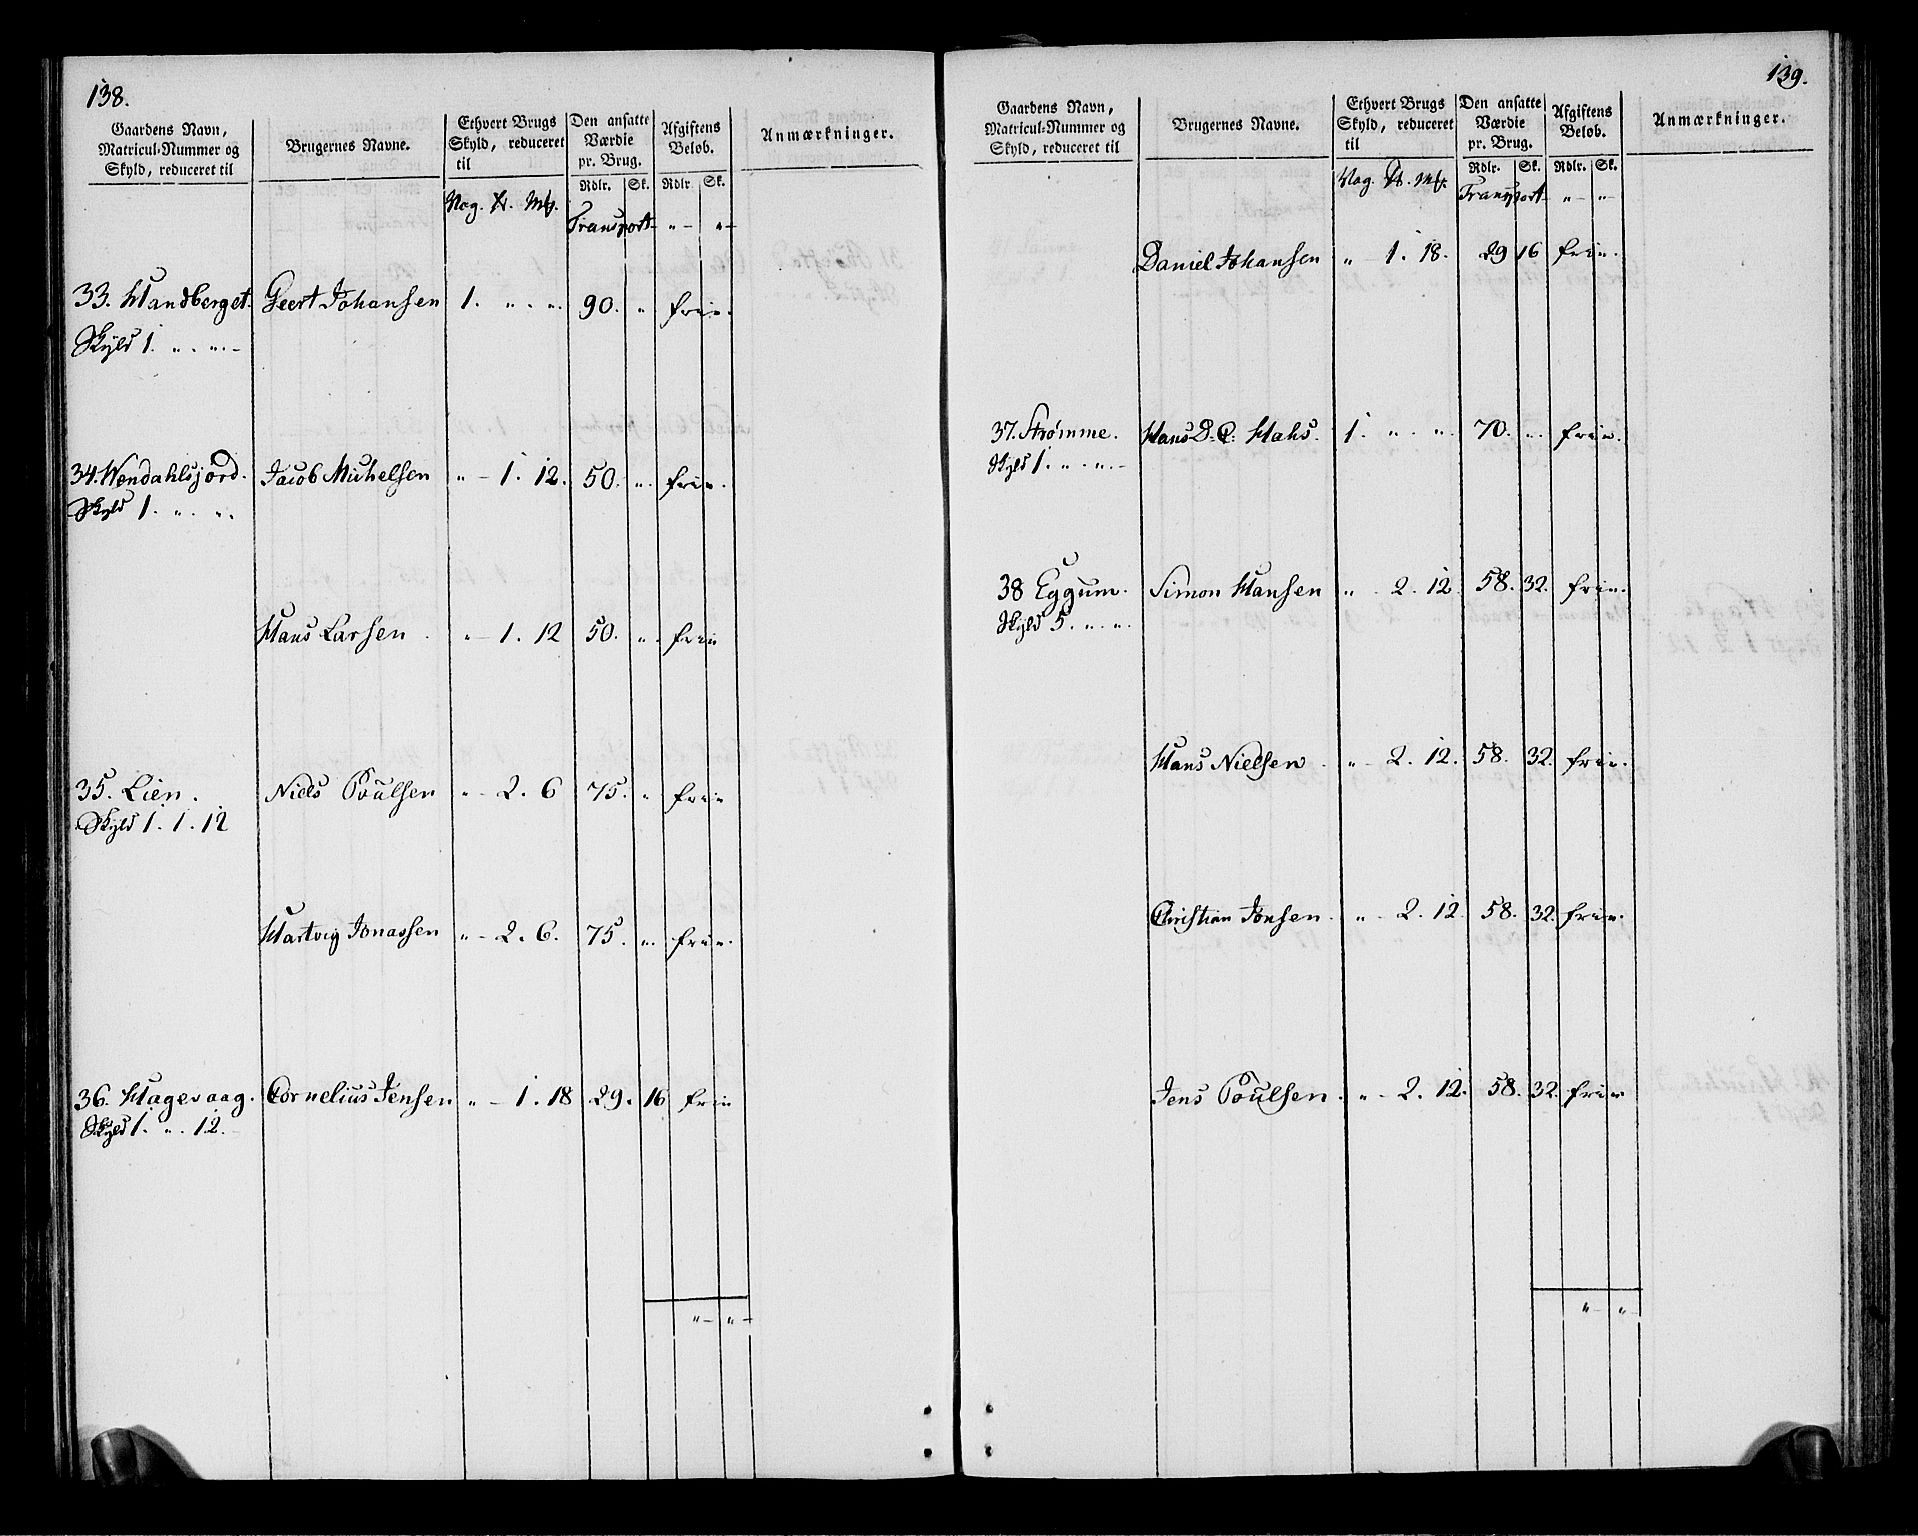 138.
Gaardens Navn, Matricul-Nummer og Skyld, reduceret til
Brugernes Navne.
Ethvert Brugs Skyld, reduceret til
Den ansatte Værdie pr. Brug.
Afgiftens Beløb.
Anmærkninger.
Rdlr. Sk. Rdlr. Sk.
Vog. Mk.
Transport „ – „ –
33. Handberget. Geert Johansen 1. „ . „ . 90. „ frie.
Skyld 1. „ . „ . –
34. Wendahlsjord. Jacob Michelsen „ – 1. 12. 50. „ . frie.
Skyld 1. „ . „ .
Hans Larsen . „ – 1. 12 50. „ . frie
35. Lien. Niels Poulsen „ – 2. 6 75. „ frie
Skyld 1. 1. 12
Hartvig Jonassen „ – 2. 6. 75. „ . frie.
36. Hagevaag. Cornelius Jensen „ – 1. 18 29. 16 frie
Skyld 1. „ . 12.
„ – „ –
139.
Gaardens Navn, Matricul-Nummer og Skyld, reduceret til
Brugernes Navne.
Ethvert Brugs Skyld, reduceret til
Den ansatte Værdie pr. Brug.
Afgiftens Beløb.
Anmærkninger.
Rdlr. Sk. Rdlr. Sk.
Vog. Mk.
Transport „ – „ –
Daniel Johansen „ – 1. 18. 29 16 frie.
37. Strømme. Hans D. Hahs. 1. „ . „ . 70. „ . frie.
Skyld 1. „ . „ . –
38 Eggum. Simon Hansen „ – 2. 12 58. 32. frie.
Skyld 5. „ . „ .
Hans Nielsen . „ – 2. 12. 58. 32. frie.
Christian Jonsen. „ – 2. 12. 58. 32. frie.
Jens Poulsen. „ – 2. 12. 58. 32. frie
„ – „ –